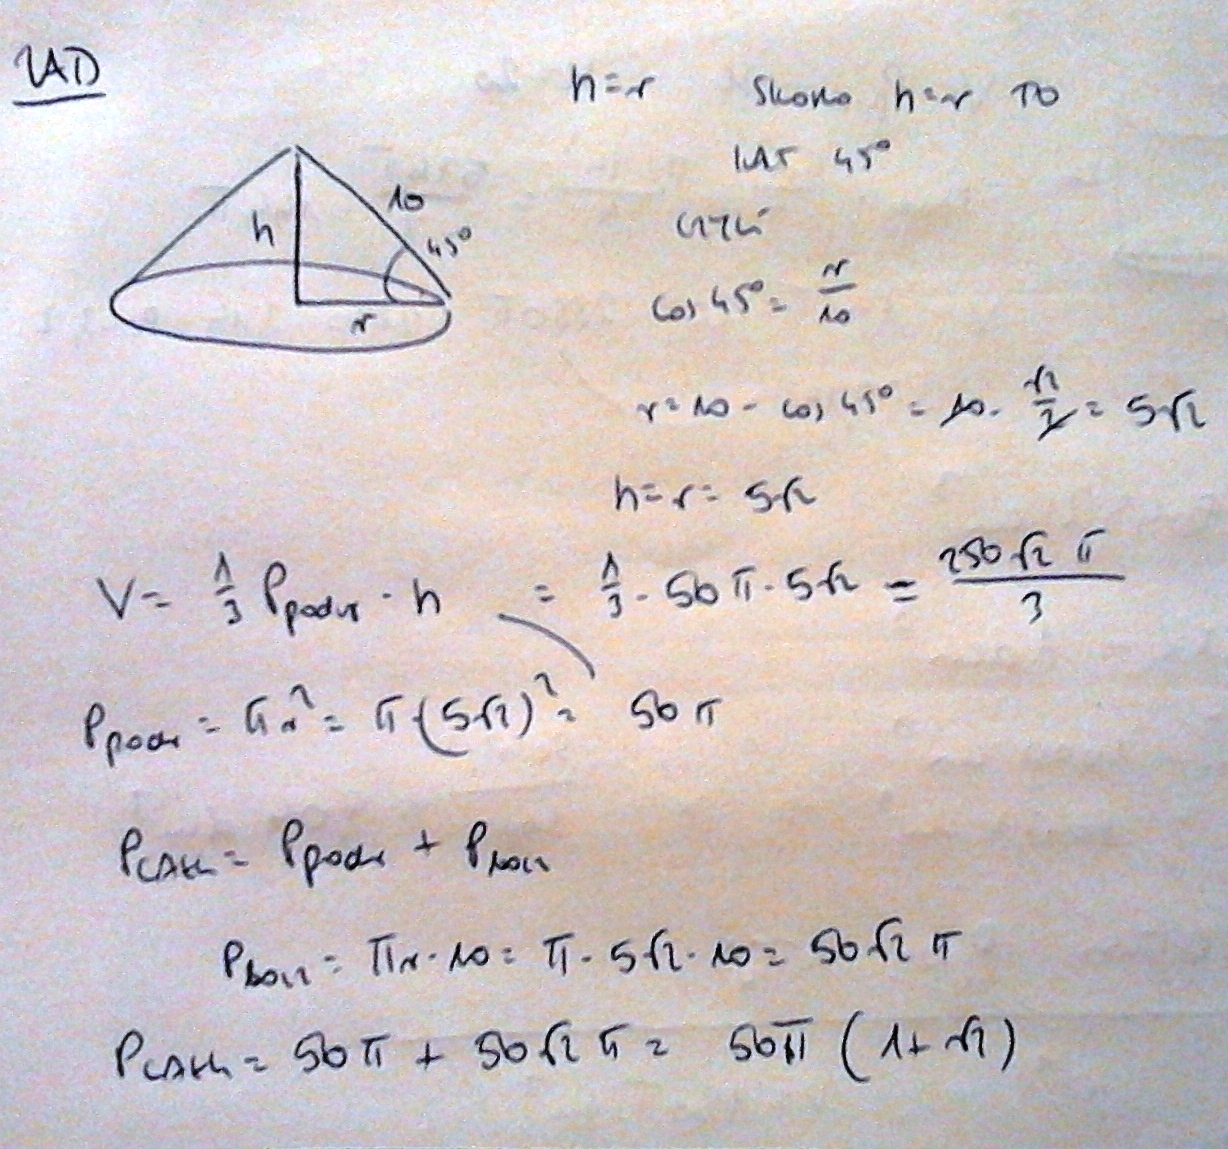 ZAD
h=r skoro h=r to
kąt 45°
czyli
h
10
45°
r
cos 45° = r/10
r = 10 · cos 45° = 10 · √2/2 = 5√2
h = r = 5√2
V = 1/3 Ppodst · h = 1/3 · 50π · 5√2 = 250√2 π/3
Ppodst = πr² = π(5√2)² = 50π
Pcałk = Ppodst + Pbocz
Pbocz = πr · 10 = π · 5√2 · 10 = 50√2 π
Pcałk = 50π + 50√2 π = 50π (1+√2)